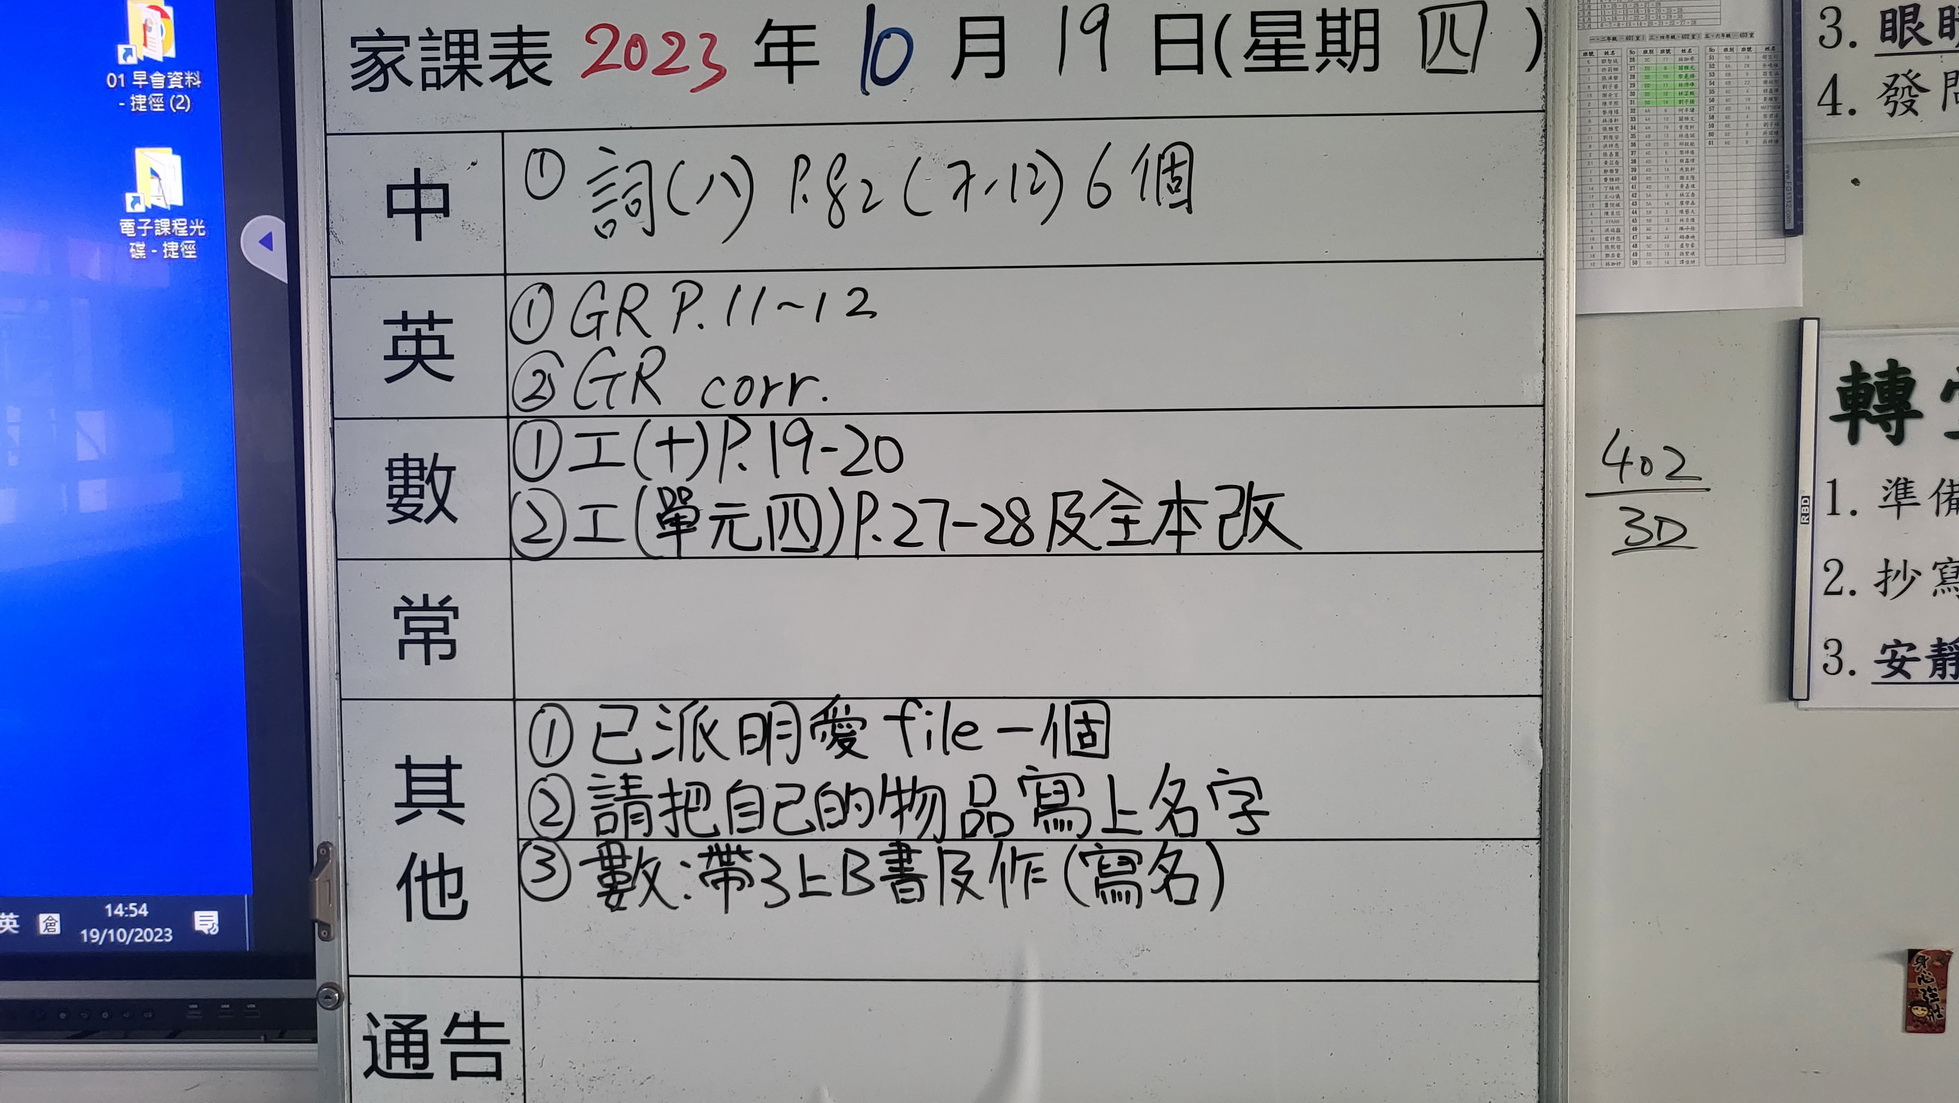 01 早會資料
- 捷徑 (2)
電子課程光
碟 - 捷徑
英 倉 14:54
19/10/2023
家課表 2023 年 10 月 19 日(星期 四 )
中
① 詞(八) P.82 (7-12) 6個
英
① GR P.11~12
② GR corr.
數
① 工(十)P.19-20
② 工(單元四)P.27-28及全本改
常
其他
① 已派明愛file一個
② 請把自己的物品寫上名字
③ 數:帶3上B書及作(寫名)
通告
402
3D
3. 眼
4. 發
轉
1. 準備
2. 抄寫
3. 安靜
RBD